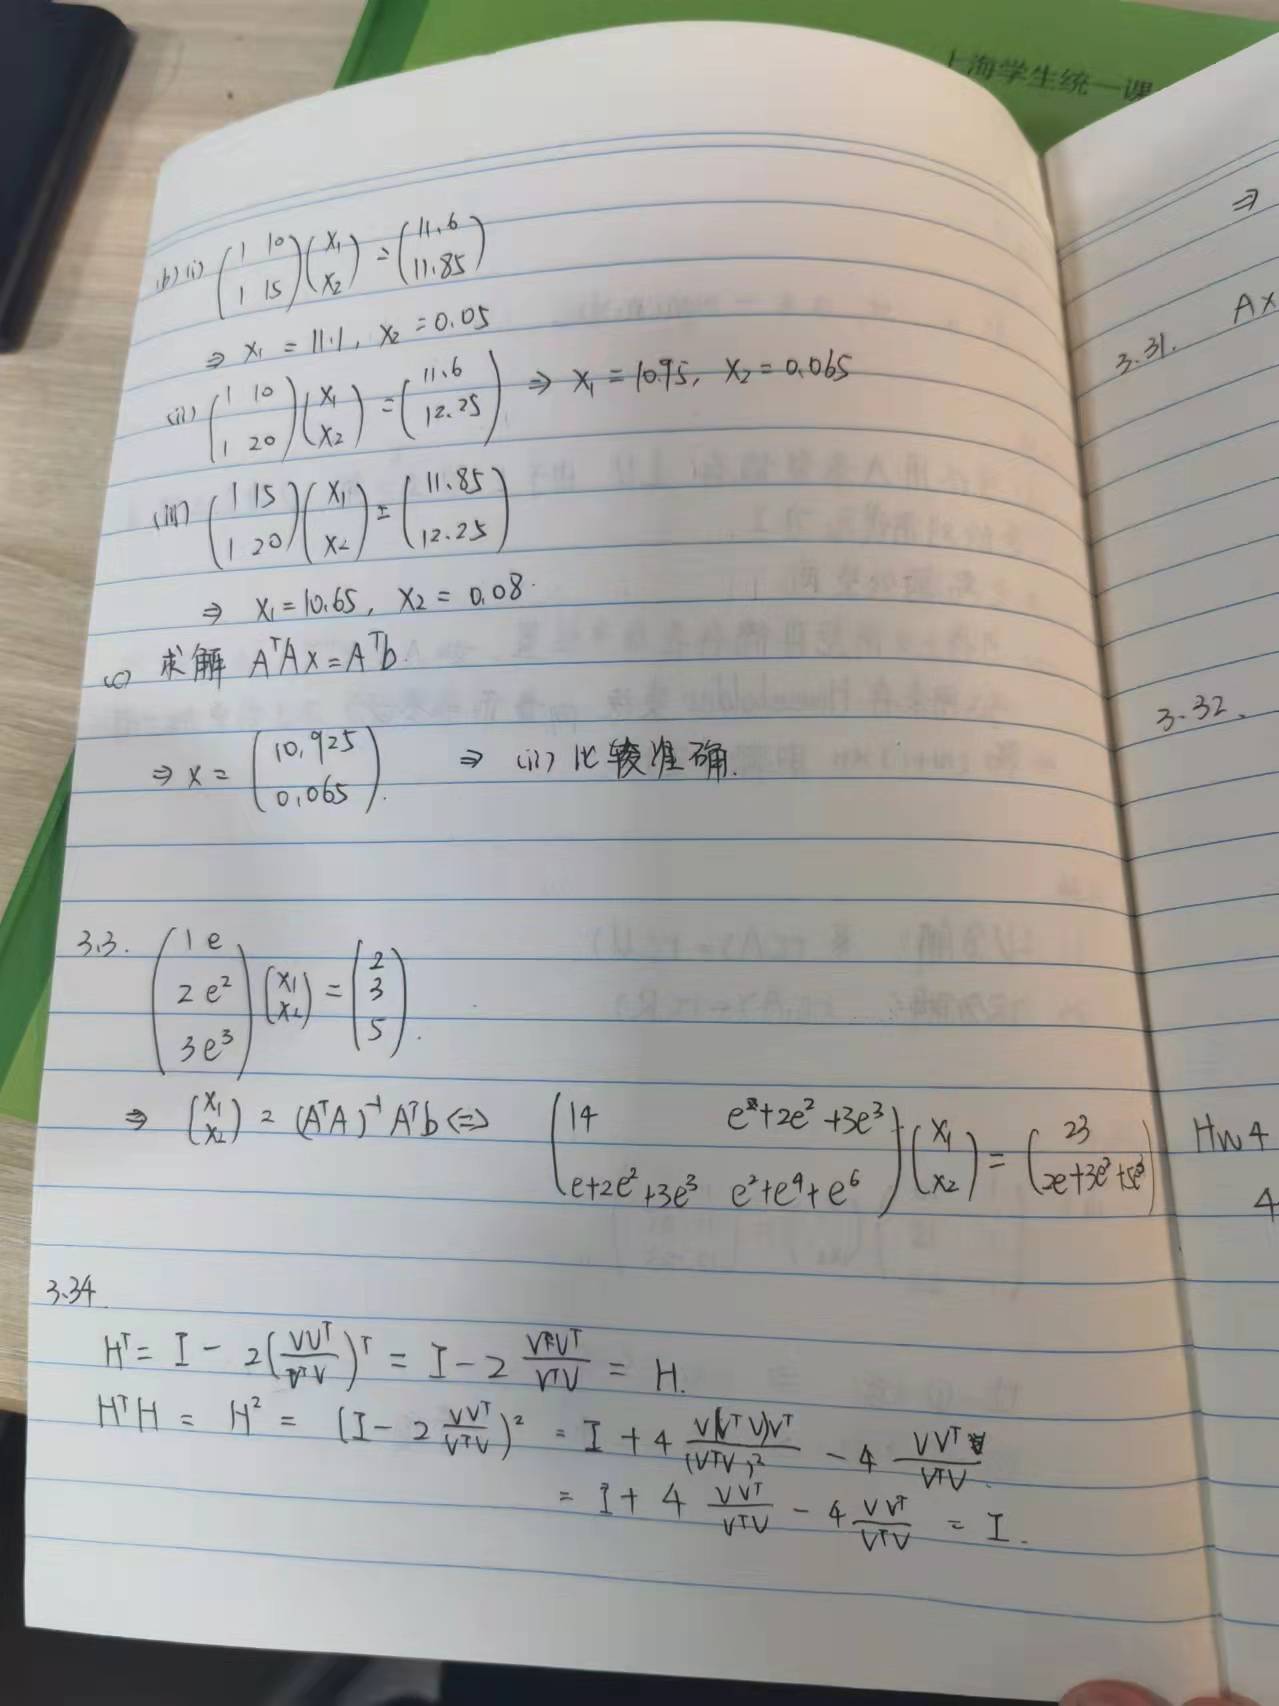 上海学生统一课
(b) (i) (1 10
1 15)(x₁
x₂) = (11.6
11.85)
⇒ x₁ = 11.1, x₂ = 0.05
(ii) (1 10
1 20)(x₁
x₂) = (11.6
12.25) ⇒ x₁ = 10.95, x₂ = 0.065
(iii) (1 15
1 20)(x₁
x₂) = (11.85
12.25)
⇒ x₁ = 10.65, x₂ = 0.08.
(c) 求解 AᵀAx = Aᵀb.
⇒ x = (10.925
0.065). ⇒ (ii) 比较准确.
3.3. (1 e
2 e²
3 e³)(x₁
x₂) = (2
3
5).
⇒ (x₁
x₂) = (AᵀA)⁻¹Aᵀb ⇔ (14 e+2e²+3e³
e+2e²+3e³ e²+e⁴+e⁶)(x₁
x₂) = (23
2e+3e²+5e³)
3.34
Hᵀ = I − 2(VVᵀ/VᵀV)ᵀ = I − 2 VVᵀ/VᵀV = H.
HᵀH = H² = (I − 2 VVᵀ/VᵀV)² = I + 4 V(VᵀV)Vᵀ/(VᵀV)² − 4 VVᵀ/VᵀV
= I + 4 VVᵀ/VᵀV − 4 VVᵀ/VᵀV = I.
⇒
AX
3.31.
3.32.
HW4
4